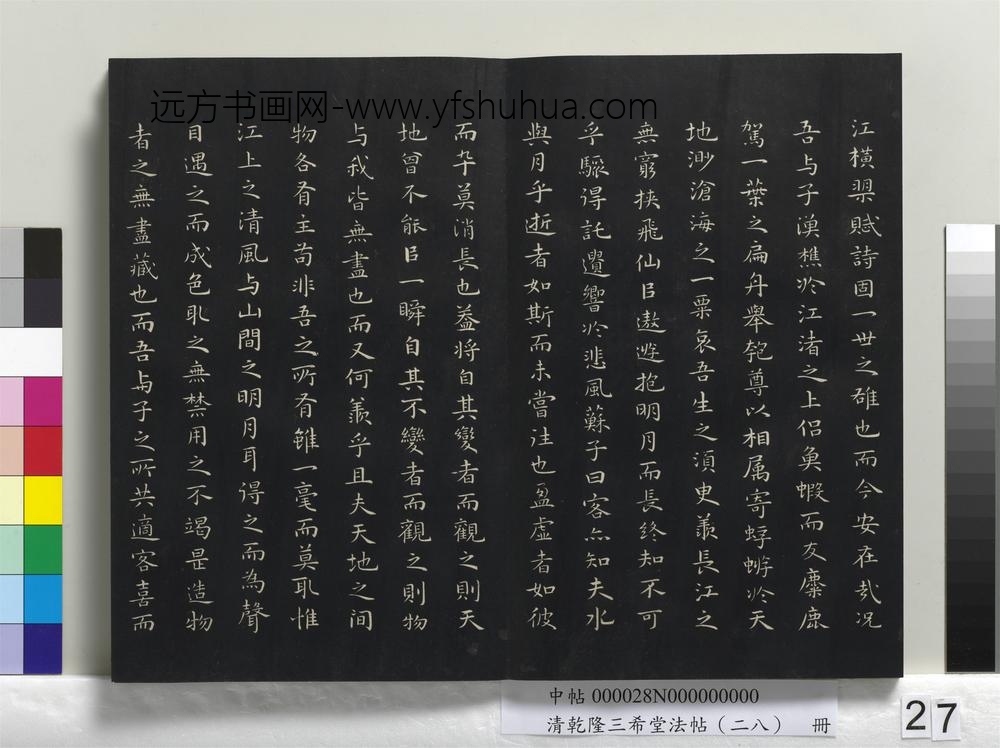 远方书画网-www.yfshuhua.com
江橫槊賦詩固一世之雄也而今安在哉况
吾与子漁樵於江渚之上侣魚蝦而友麋鹿
駕一葉之扁舟舉匏尊以相属寄蜉蝣於天
地渺滄海之一粟哀吾生之湏臾羨長江之
無窮挾飛仙㠯遨遊抱明月而長终知不可
乎驟得託遺響於悲風蘇子曰客亦知夫水
與月乎逝者如斯而未嘗往也盈虛者如彼
而卒莫消長也盖将自其變者而觀之則天
地曾不能㠯一瞬自其不變者而觀之則物
与我皆無盡也而又何羨乎且夫天地之间
物各有主苟非吾之所有雖一毫而莫取惟
江上之清風与山間之明月耳得之而為聲
目遇之而成色取之無禁用之不竭是造物
者之無盡藏也而吾与子之所共適客喜而
中帖 000028N000000000
清乾隆三希堂法帖（二八） 冊
27